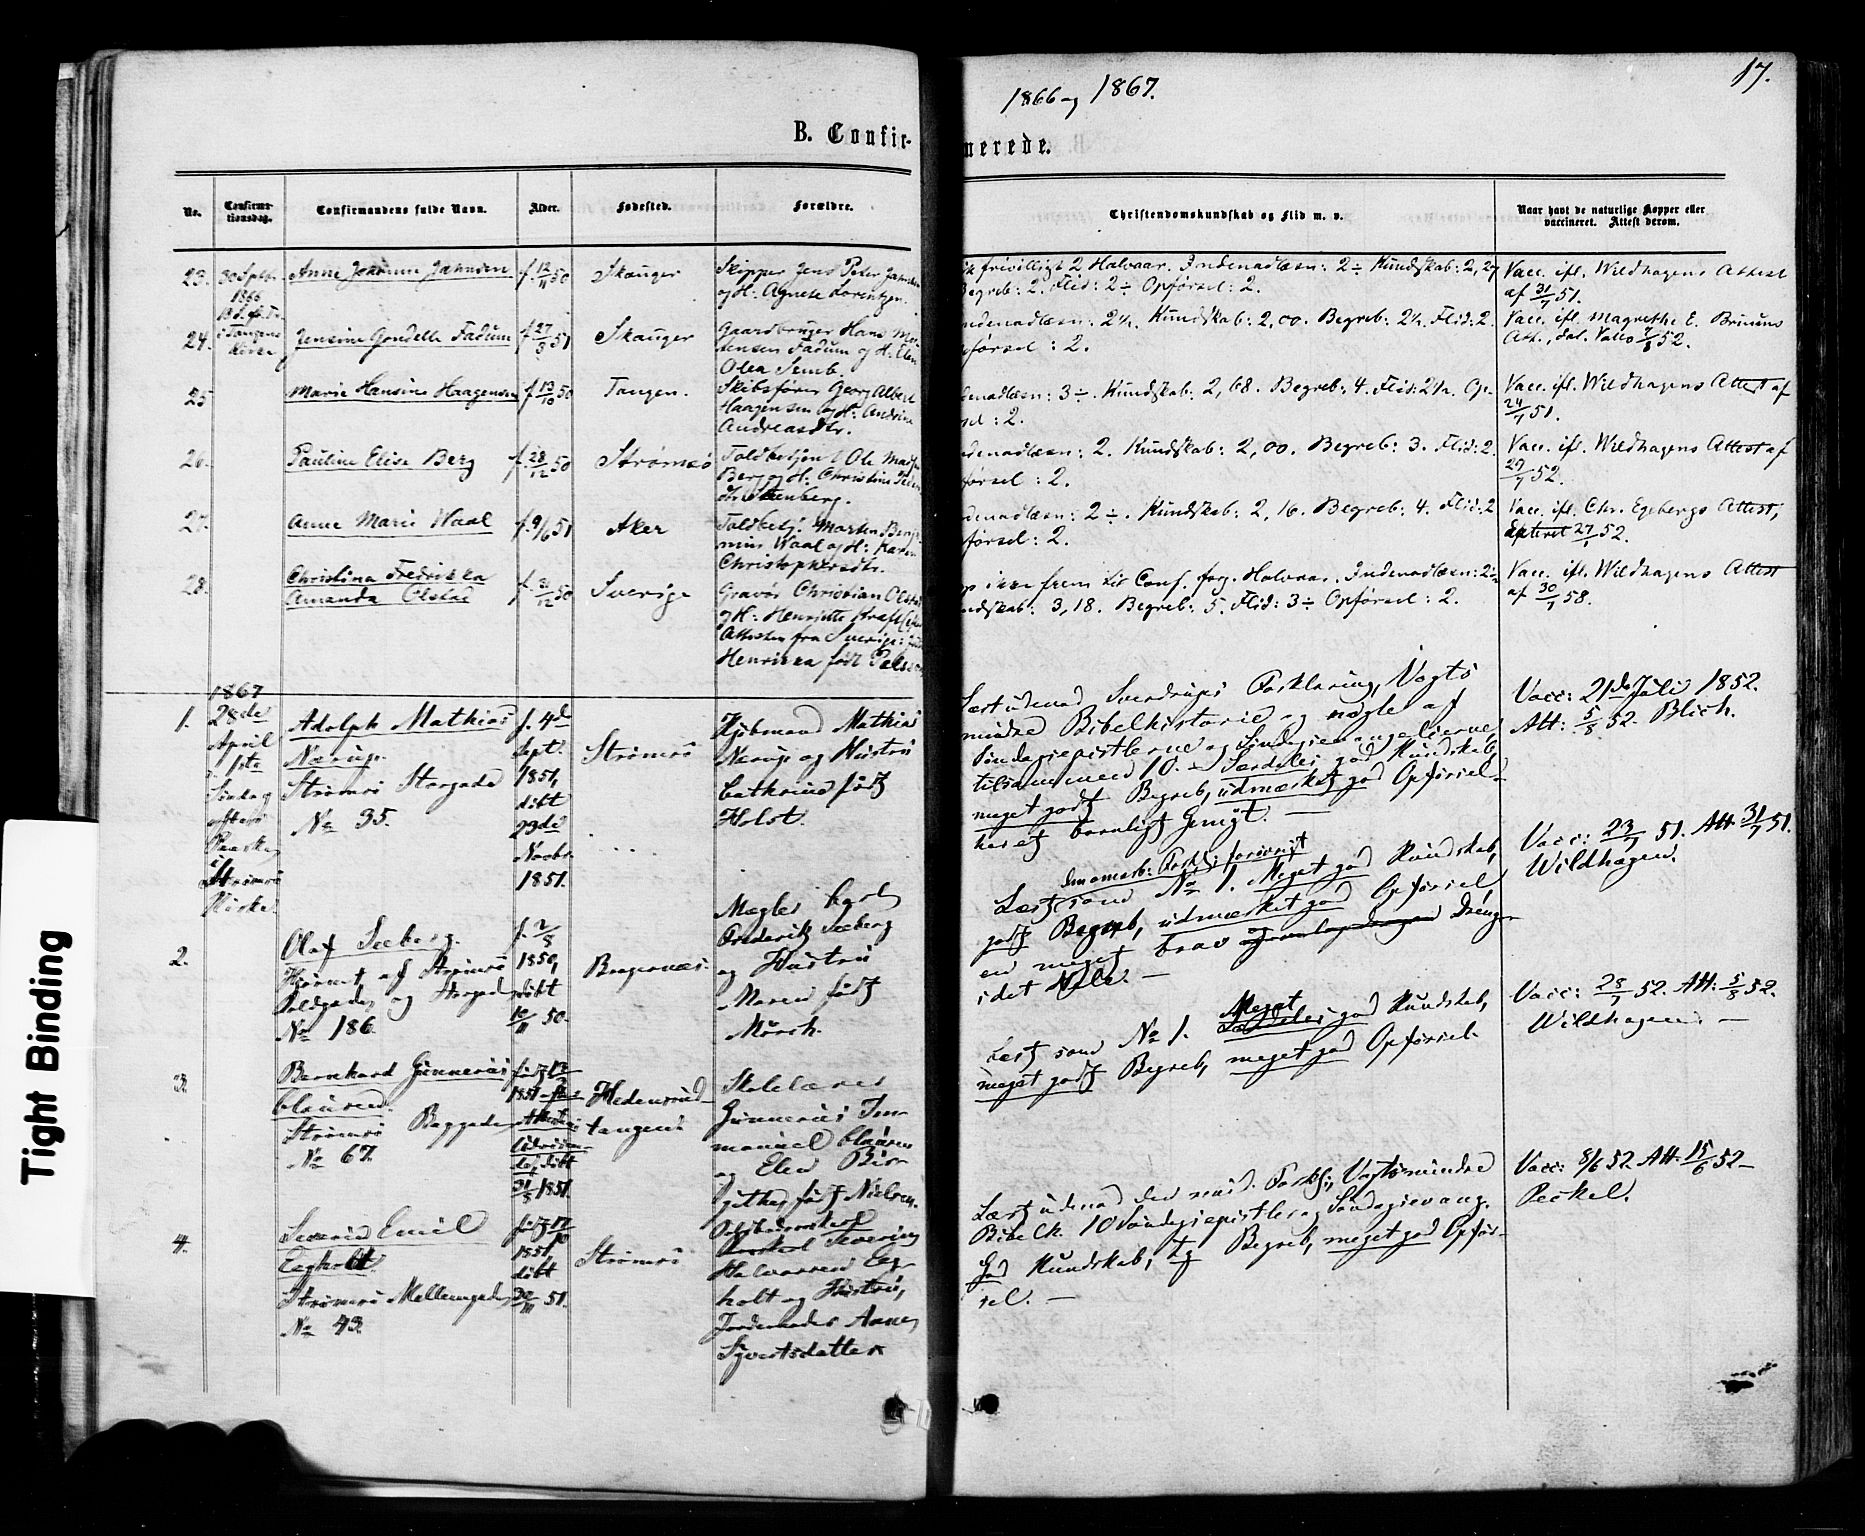 17.
1866 og 1867.
B. Confir-
merede.
No.
Confirma-
tionsdag.
Confirmandens fulde Navn.
Alder.
Fødested.
Forældre.
Christendomskundskab og Flid m. v.
Naar havt de naturlige Kopper eller
vaccineret. Attest derom.
23.
30 Sptbr.
1866
i Tangens
Kirke
Anne Johanne Jahnsen
f. 12/11 50
Skauger
Skipper Jens Peter Jahnsen
og H: Agnete Lorentzen.
frivilligt 2 Halvaar. Indenadlæsn: 2÷ Kundskab: 2,27
Begreb: 2. Flid: 2÷ Opførsel: 2.
Vacc. ifl. Wildhagens Attest
af 31/7 51.
24.
Jensine Gondelle Fadum
f. 27/3 51
Skauger
Gaardbruger Hans Mor-
tensen Fadum og H: Elen
Olea Semb.
Indenadlæsn: 2½. Kundskab: 2,00. Begreb: 2½. Flid: 2.
Opførsel: 2.
Vacc. ifl. Magrethe E. Bruuns
Att., dat. Vallø 7/8 52.
25
Marie Hansine Haagensen
f. 13/10 50
Tangen.
Skibsfører Georg Albert
Haagensen og H: Andrine
Andreasdtr.
Indenadlæsn: 3÷. Kundskab: 2,68. Begreb: 4. Flid: 2½. Op-
førsel: 2.
Vacc. ifl. Wildhagens Attest af
24/7 51.
26.
Pauline Elise Berg
f. 28/12 50
Strømsø
Toldbetjent Ole Mads
Berg og H: Christine
Indenadlæsn: 2. Kundskab: 2,00. Begreb: 3. Flid: 2.
Opførsel: 2.
Vacc. ifl. Wildhagens Attest af
29/7 52.
27.
Anne Marie Waal
f. 9/6 51
Aker
Toldbetj. Morten Benja-
min Waal og H: Karen
Christophersdtr.
Indenadlæsn: 2÷. Kundskab: 2,16. Begreb: 4. Flid: 2
Opførsel: 2.
Vacc. ifl. Chr. Egebergs Attest,
27/1 52.
28.
Christina Fredrikka
Amanda Olstad
f. 31/12 50
Sverige
Gravør Christian Olstad
og H: Henriette Kraft (ifl.
Attesten fra Sverige:
Henrikka født
ikke frem til Conf. forg. Halvaar. Indenadlæsn: 2÷
Kundskab: 3,18. Begreb: 5. Flid: 3÷ Opførsel: 2.
Vacc. ifl. Wildhagens Attest
af 30/1 58.
1867
1.
28de
April
1ste
Søndag
efter
Paaske
i
Strømsø
Kirke.
Adolph Mathias
Nærup.
Strømsø Storgade
No 35.
f. 4de
Septr.
1851,
døbt
23de
Novbr.
1851.
Strømsö
Kjøbmand Mathias
Nærup og Hustru
Cathrine født
Holst.
Læst udenad Sverdrups Forklaring, Vogts
mindre Bibelhistorie og nogle af
Søndagsepistlerne og Søndagsevangelierne,
tilsammen 10. – Særdeles god Kundskab
meget godt Begreb, udmærket god Opførsel.
har et barnligt Gemyt. —
Vacc: 21de Juli 1852.
Att: 5/8 52. Blich.
2.
Olaf Seeberg.
Hjørnet af Strømsø
Toldgade og Storgade
No 186
f. 2/8
1850,
døbt
10/11 50.
Bragernæs.
Mægler Carl
Frederik Seeberg
og Hustru
Maren født
Mørch.
Læst som No 1. Meget god Kundskab,
godt Begreb, udmærket god Opførsel,
en meget brav Dreng
i det Hele. —
Vacc: 23/7 51. Att. 31/7 51.
Wildhagen.
3.
Bernhard Gunnerius
Clausen.
Strømsø Baggade
No 67.
1851
døbt
31/8 1851.
Hedensrud-
tangen.
Skolelærer
Gunnerius Im-
manuel Clausen
og Elen Bir-
githe, født Nielsen.
Læst som No 1. Meget god Kundskab,
meget godt Begreb, meget god Opførsel.
Vacc: 28/7 52. Att: 5/8 52.
Wildhagen. —
4.
Severin Emil
Eegholt.
Strømsø Mellemgade
No 43.
1851,
døbt
30/11 51.
Strømsø
Severin
Halvorsen Eeg-
holt og Hustru,
Jordemoder Anne
Syvertsdatter
Læst udenad den Forkl., Vogts mindre
Bibelh. 10 Søndagsepistler og Søndagsevang.
God Kundskab, Tg Begreb, meget god Opfør-
sel. —
Vacc: 8/6 52. Att. 15/6 52 –
Peckel.
Tight Binding